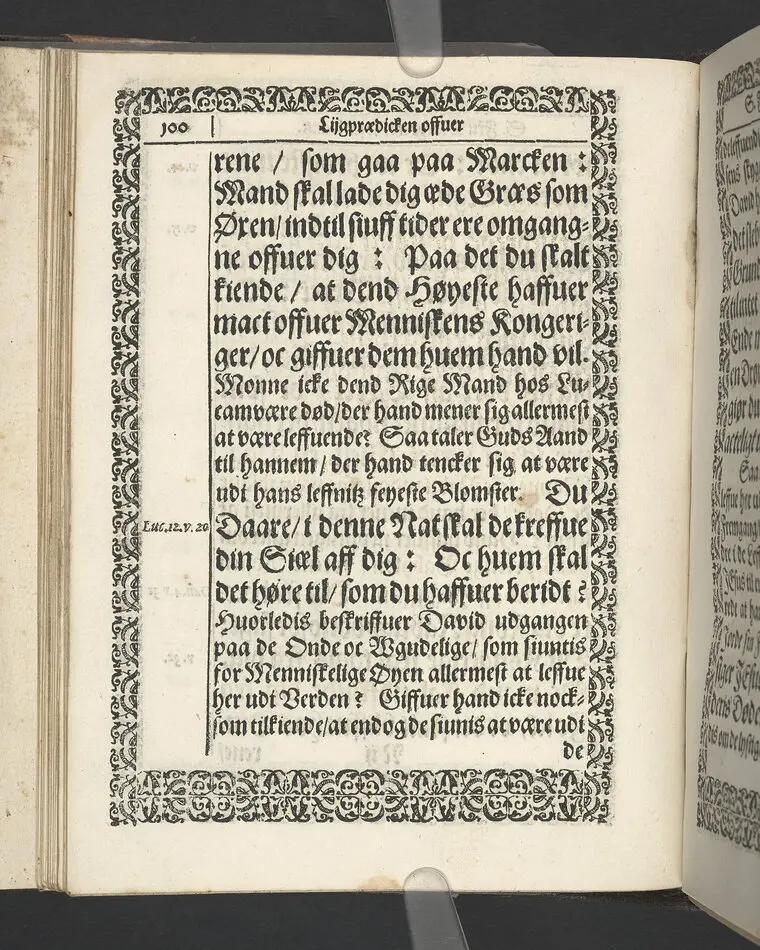 100
Lijgprædicken offuer
rene / som gaa paa Marcken :
Mand skal lade dig æde Græs som
Øxen/ indtil siuff tider ere omgang-
ne offuer dig : Paa det du skalt
kiende / at dend Høyeste haffuer
mact offuer Menniskens Kongeri-
ger/ oc giffuer dem huem hand vil.
Monne icke dend Rige Mand hos Lu-
cam være død/ der hand mener sig allermest
at være leffuende? Saa taler Guds Aand
til hannem / der hand tencker sig at være
udi hans leffnitz feyeste Blomster. Du
Luc.12.v.20
Daare/ i denne Nat skal de kreffue
din Siæl aff dig : Oc huem skal
det høre til/ som du haffuer beridt ?
Huorledis beskriffuer David udgangen
paa de Onde oc Wgudelige/ som siuntis
for Menniskelige Øyen allermest at leffue
her udi Verden ? Giffuer hand icke nock-
som tilkiende/ at endog de siunis at være udi
de